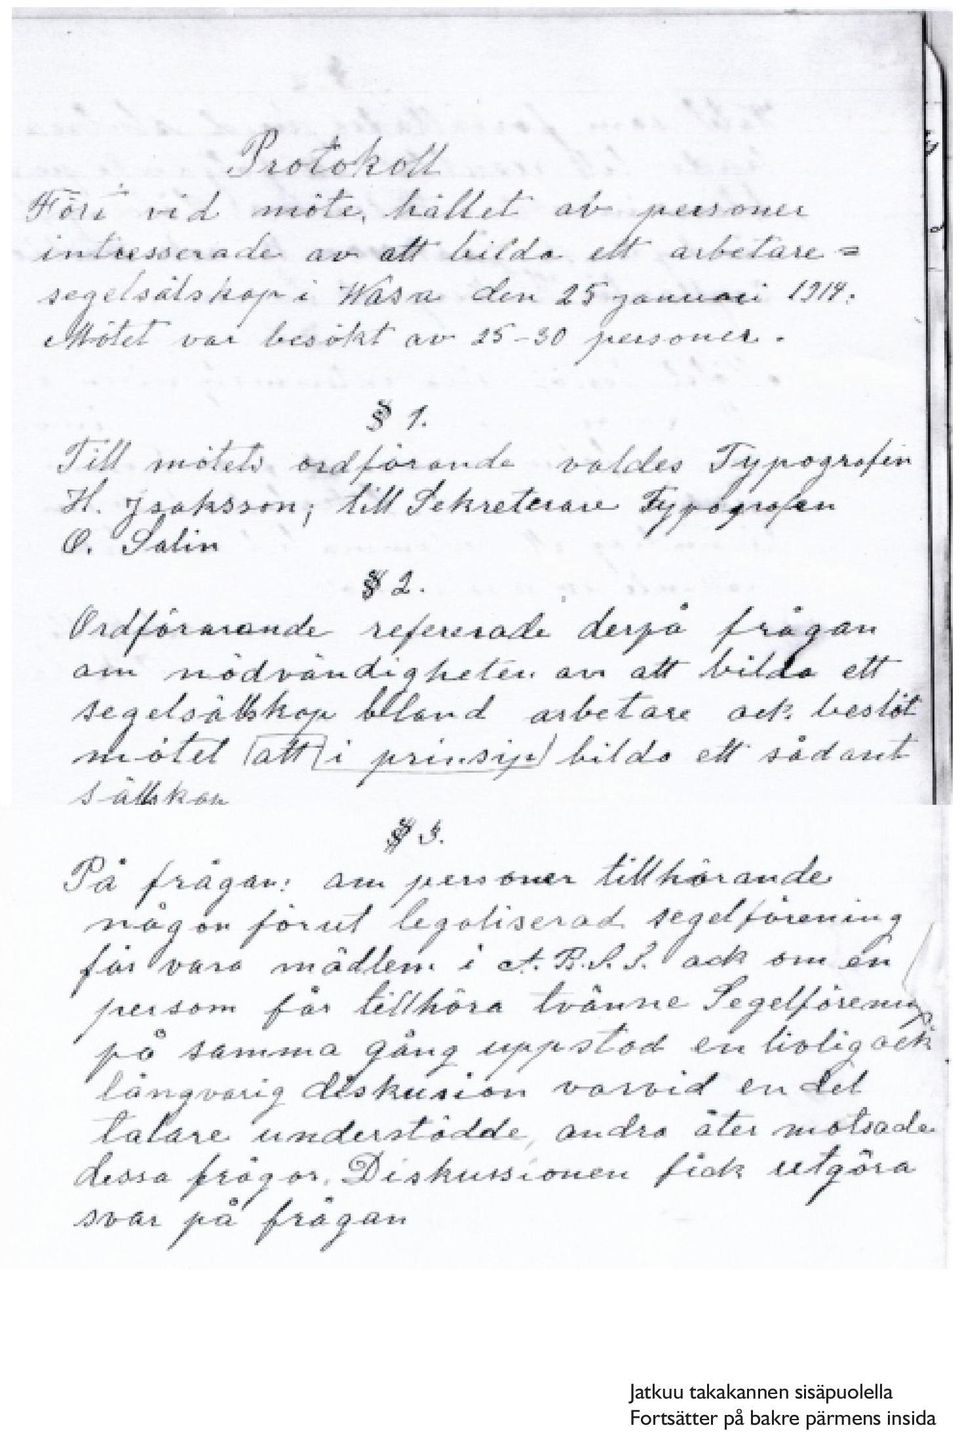 Protokoll
Fört vid möte, hållet av personer
intresserade av att bilda ett arbetare=
segelsälskap i Wasa den 25 januari 1914.
Mötet var besökt av 25-30 personer.
§ 1.
Till mötets ordförande valdes Typografen
H. Isaksson; till Sekreterare Typografen
O. Salin
§ 2.
Ordförarande refererade derpå frågan
om nödvändigheten av att bilda ett
segelsällskap bland arbetare ock beslöt
mötet (att i prinsip) bilda ett sådant
sällskap
§ 3.
På frågan: om personer tillhörande
någon förut legaliserad segelförening
får vara mädlem i A.B.S.S. ock om en
person får tillhöra tvänne Segelförening
på samma gång uppstod en livlig ock
långvarig diskusion varvid en del
talare understödde, andra åter motsade
dessa frågor. Diskussionen fick utgöra
svar på frågan
Jatkuu takakannen sisäpuolella
Fortsätter på bakre pärmens insida